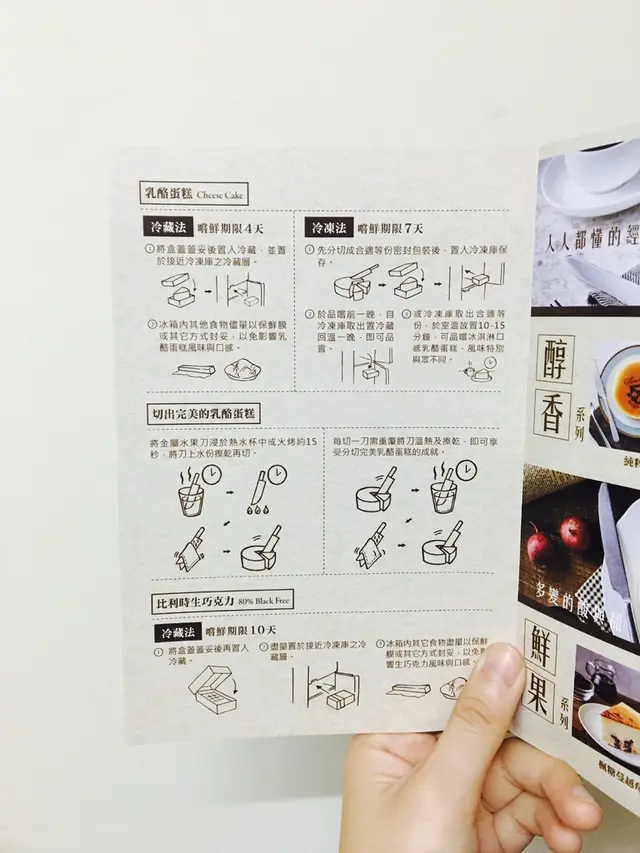 乳酪蛋糕 Cheese Cake
冷藏法 嚐鮮期限4天
①將盒蓋蓋妥後置入冷藏，並置
於接近冷凍庫之冷藏層。
②冰箱內其他食物儘量以保鮮膜
或其它方式封妥，以免影響乳
酪蛋糕風味與口感。
冷凍法 嚐鮮期限7天
①先分切成合適等份密封包裝後，置入冷凍庫保
存。
②於品嚐前一晚，自
冷凍庫取出置冷藏
回溫一晚，即可品
嘗。
③或冷凍庫取出合適等
份，於室溫放置10-15
分鐘，可品嚐冰淇淋口
感乳酪蛋糕，風味特別
與眾不同。
切出完美的乳酪蛋糕
將金屬水果刀浸於熱水杯中或火烤約15
秒，將刀上水份擦乾再切。
每切一刀需重覆將刀溫熱及擦乾，即可享
受分切完美乳酪蛋糕的成就。
比利時生巧克力 80% Black Free
冷藏法 嚐鮮期限10天
①將盒蓋蓋妥後再置入
冷藏。
②盡量置於接近冷凍庫之冷
藏層。
③冰箱內其它食物儘量以保鮮
膜或其它方式封妥，以免影
響生巧克力風味與口感。
人人都懂的經
醇香系列
純
多變的酸
鮮果系列
楓糖蔓越